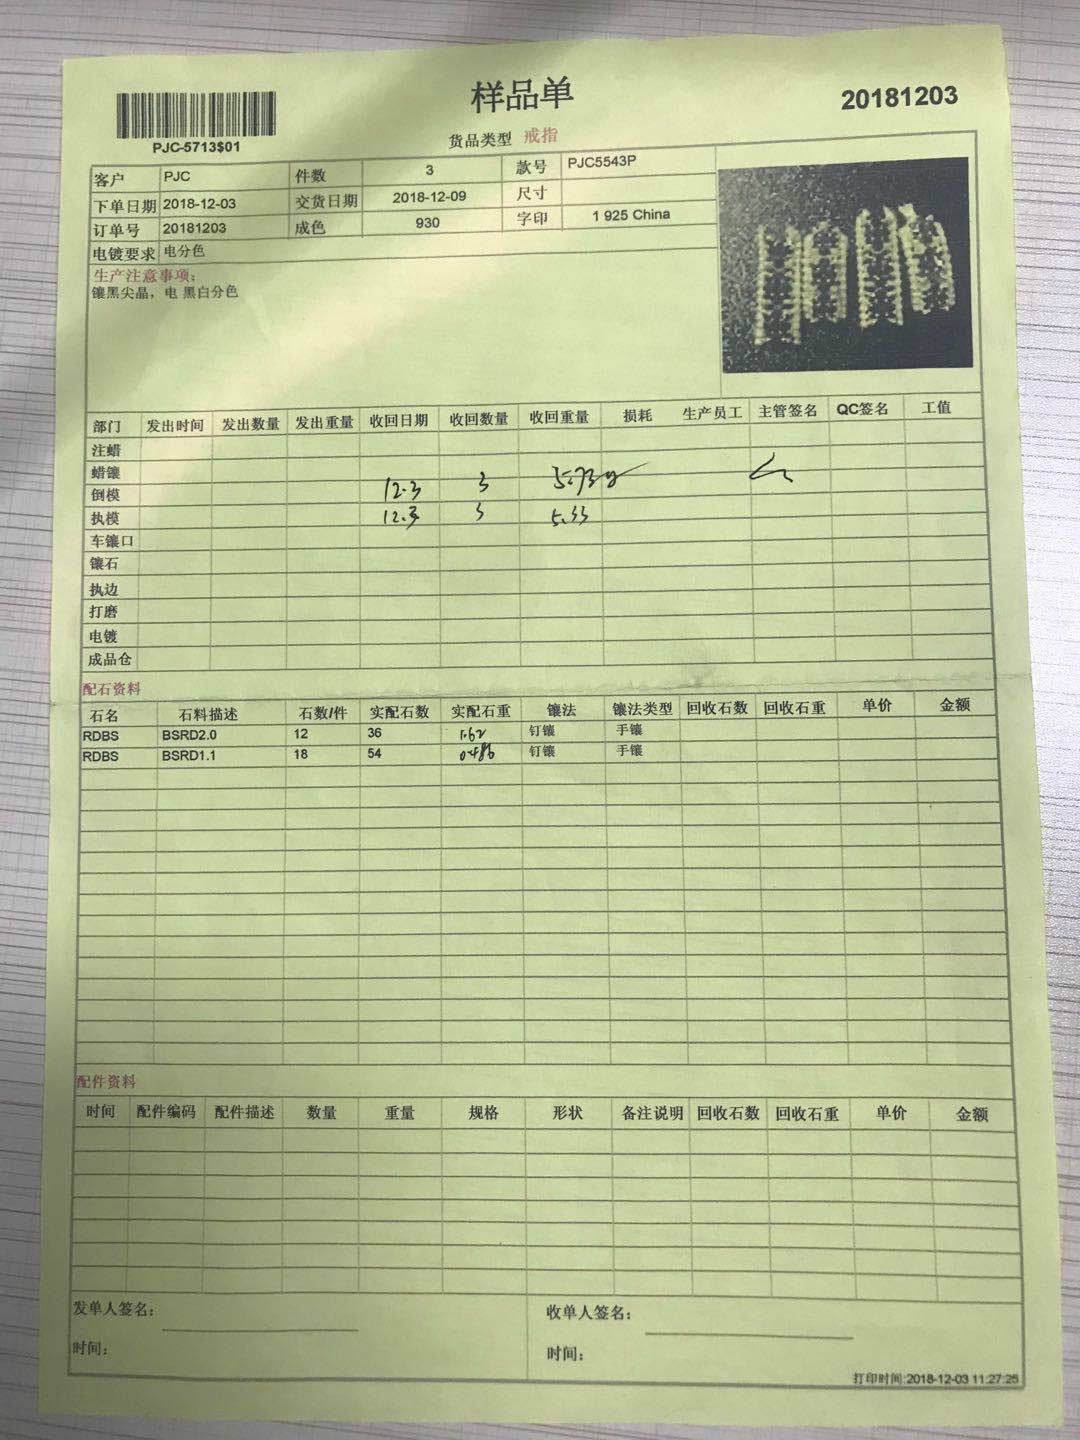 样品单
20181203
PJC-5713$01
货品类型 戒指
客户 PJC 件数 3 款号 PJC5543P
下单日期 2018-12-03 交货日期 2018-12-09 尺寸
订单号 20181203 成色 930 字印 1 925 China
电镀要求 电分色
生产注意事项:
镶黑尖晶，电 黑白分色
部门 发出时间 发出数量 发出重量 收回日期 收回数量 收回重量 损耗 生产员工 主管签名 QC签名 工值
注蜡
蜡镶
倒模 12.3 3 5.73g
执模 12.3 3 5.33
车镶口
镶石
执边
打磨
电镀
成品仓
配石资料
石名 石料描述 石数/件 实配石数 实配石重 镶法 镶法类型 回收石数 回收石重 单价 金额
RDBS BSRD2.0 12 36 1.62 钉镶 手镶
RDBS BSRD1.1 18 54 0.486 钉镶 手镶
配件资料
时间 配件编码 配件描述 数量 重量 规格 形状 备注说明 回收石数 回收石重 单价 金额
发单人签名: 收单人签名:
时间: 时间:
打印时间:2018-12-03 11:27:25